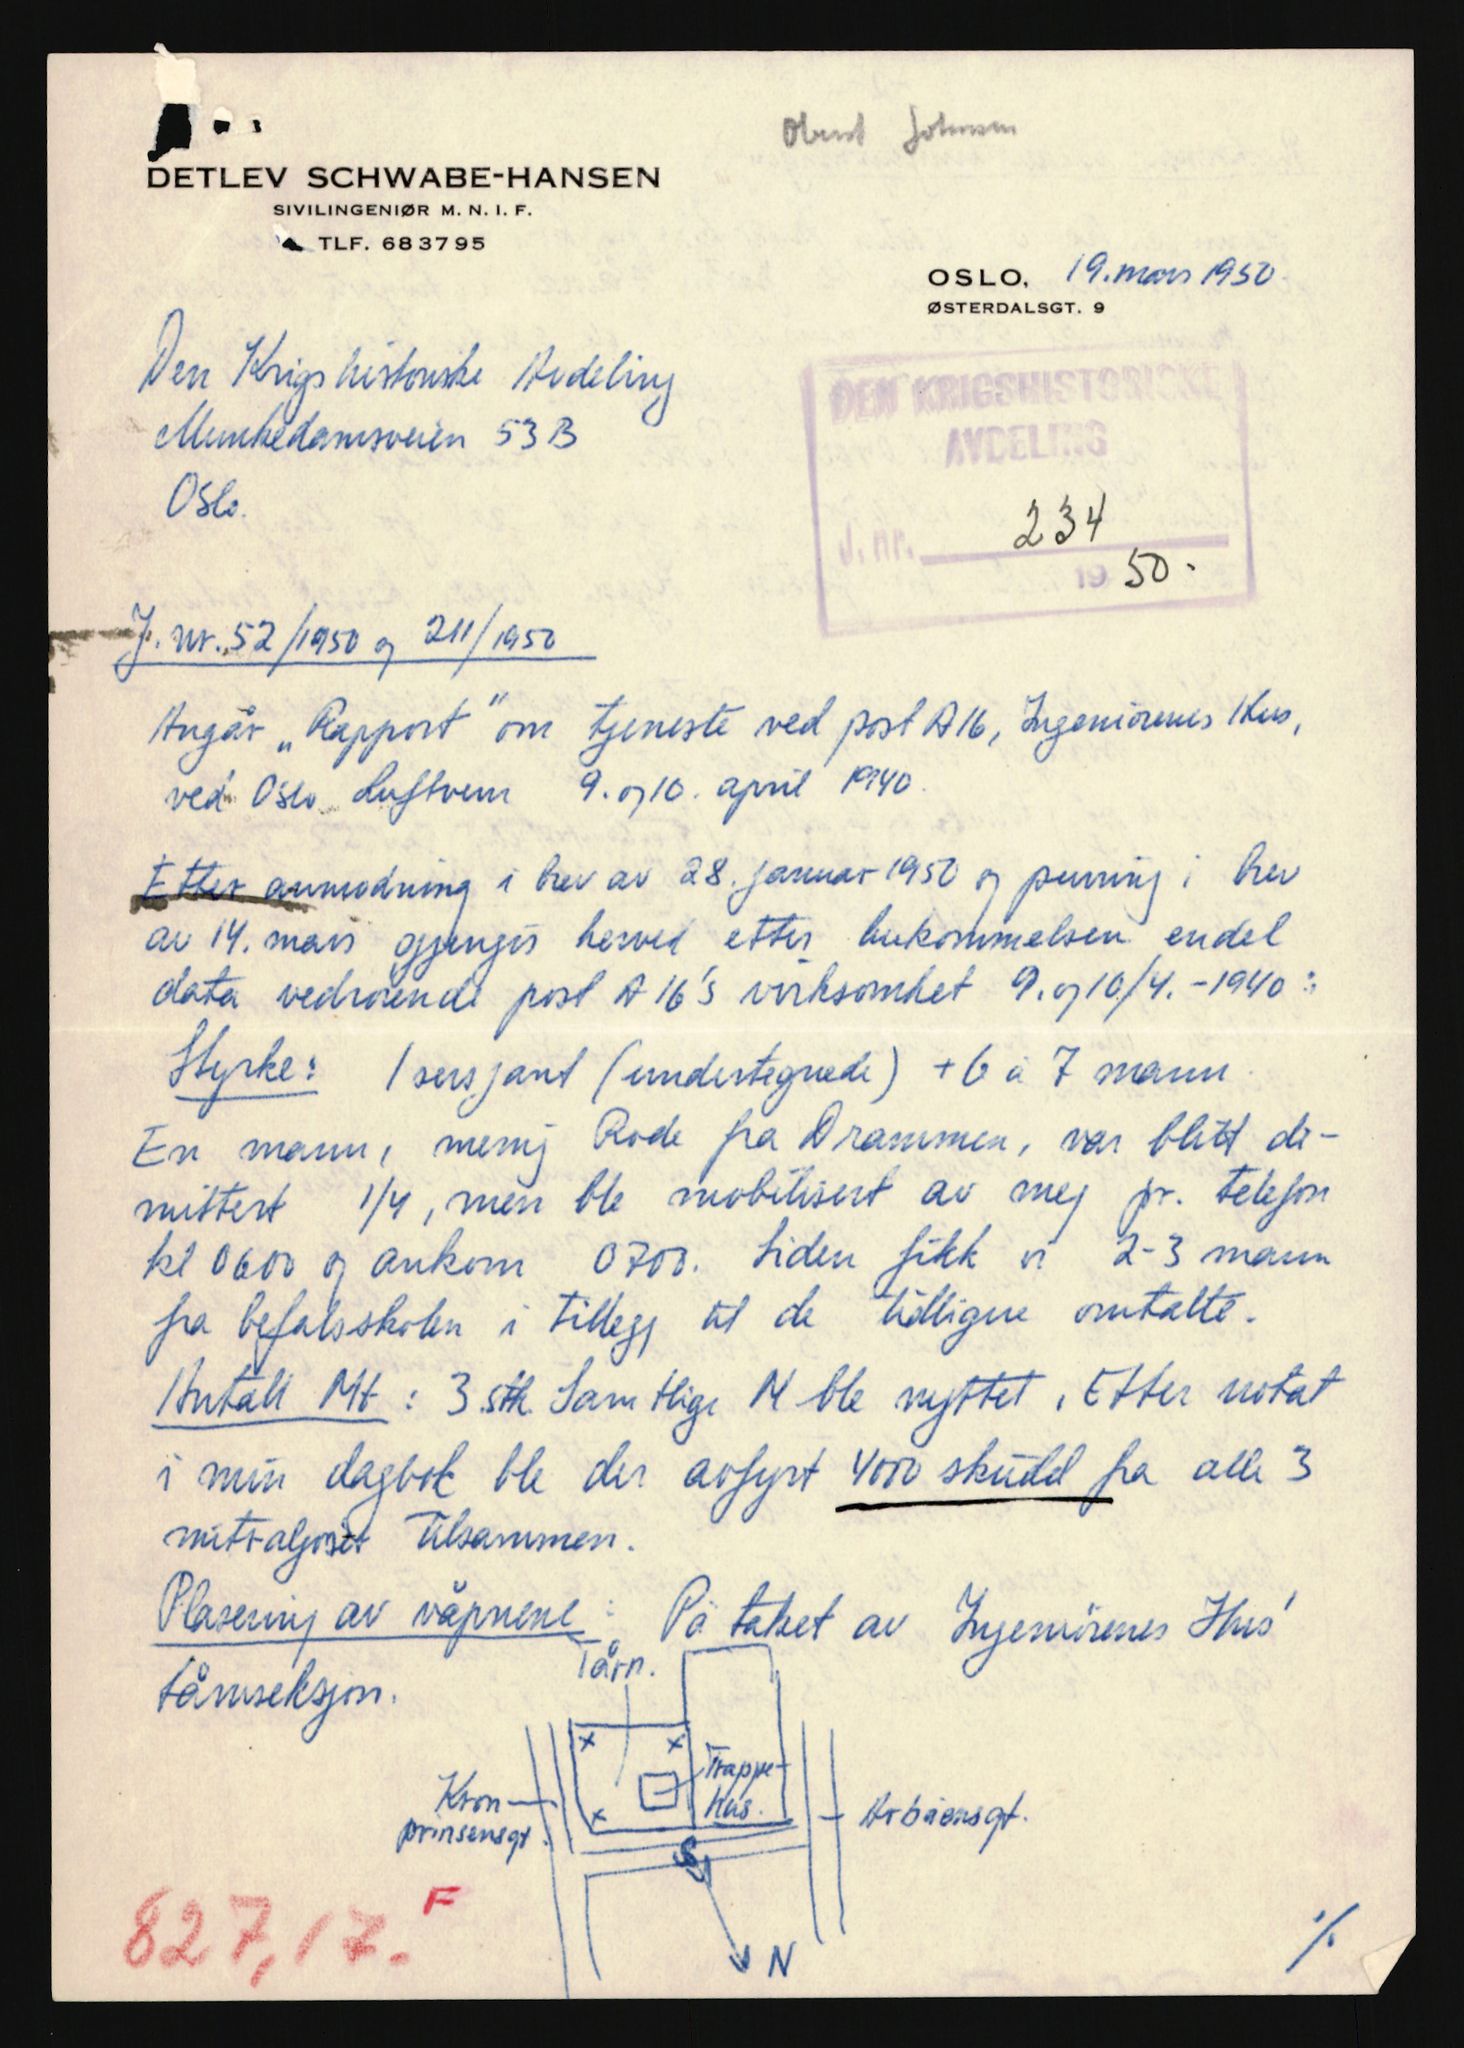 Oberst Johnsen
DETLEV SCHWABE-HANSEN
SIVILINGENIØR M. N. I. F.
TLF. 683795
OSLO, 19. mars 1950.
ØSTERDALSGT. 9
Den Krigshistoriske Avdeling
Munkedamsveien 53 B
Oslo.
DEN KRIGSHISTORISKE
AVDELING
J. nr. 234
19 50.
J. nr. 52/1950 og 211/1950
Angår „Rapport" om tjeneste ved post A16, Ingeniörenes Hus,
ved Oslo Luftvern 9. og 10. april 1940.
Etter anmodning i brev av 28. januar 1950 og purring i brev
av 14. mars gjengis herved etter hukommelsen endel
data vedrörende post A 16's virksomhet 9. og 10/4. - 1940:
Styrke: 1 sersjant (undertegnede) + 6 à 7 mann.
En mann, menig Rode fra Drammen, var blitt di-
mittert 1/4, men ble mobilisert av meg pr. telefon
kl 0600 og ankom 0700. Siden fikk vi 2-3 mann
fra befalsskolen i tillegg til de tidligere omtalte.
Antall Mt: 3 stk. Samtlige M ble nyttet. Etter notat
i min dagbok ble der avfyrt 4000 skudd fra alle 3
mitraljöser tilsammen.
Plasering av våpnene: På taket av Ingeniörenes Hus'
tårnseksjon.
Tårn.
Trappe-
hus.
Kron
prinsensgt.
Arbiensgt.
N
827,17. F
./.